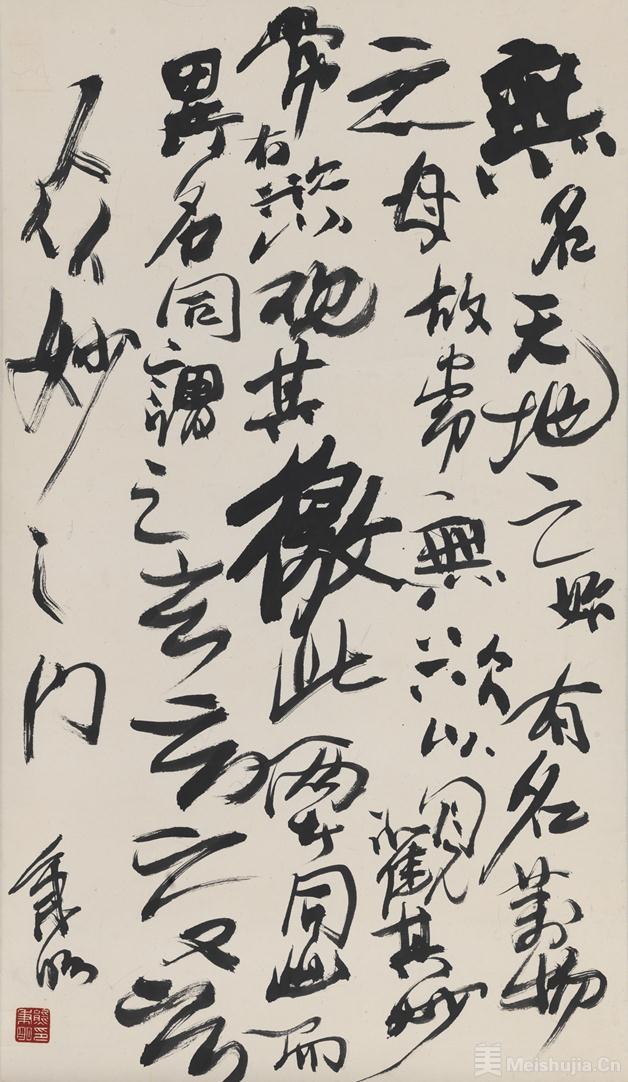 無名天地之始有名萬物
之母故常無欲以觀其妙
常有欲以觀其徼此兩者同出而
異名同謂之玄玄之又玄
眾妙之門
秉明
熊秉明印
美 Meishujia.Cn